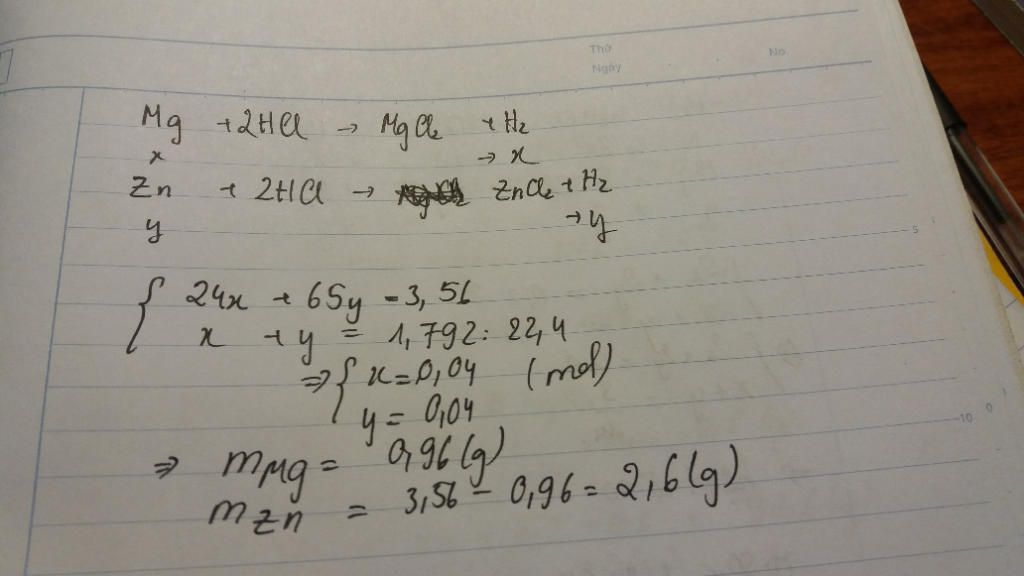 Thứ
No.
Ngày
Mg + 2HCl → MgCl2 + H2
x → x
Zn + 2HCl → ZnCl2 + H2
y → y
24x + 65y = 3,56
x + y = 1,792 : 22,4
⇒ { x = 0,04 (mol)
y = 0,04
⇒ mMg = 0,96 (g)
mZn = 3,56 - 0,96 = 2,6 (g)
5
10